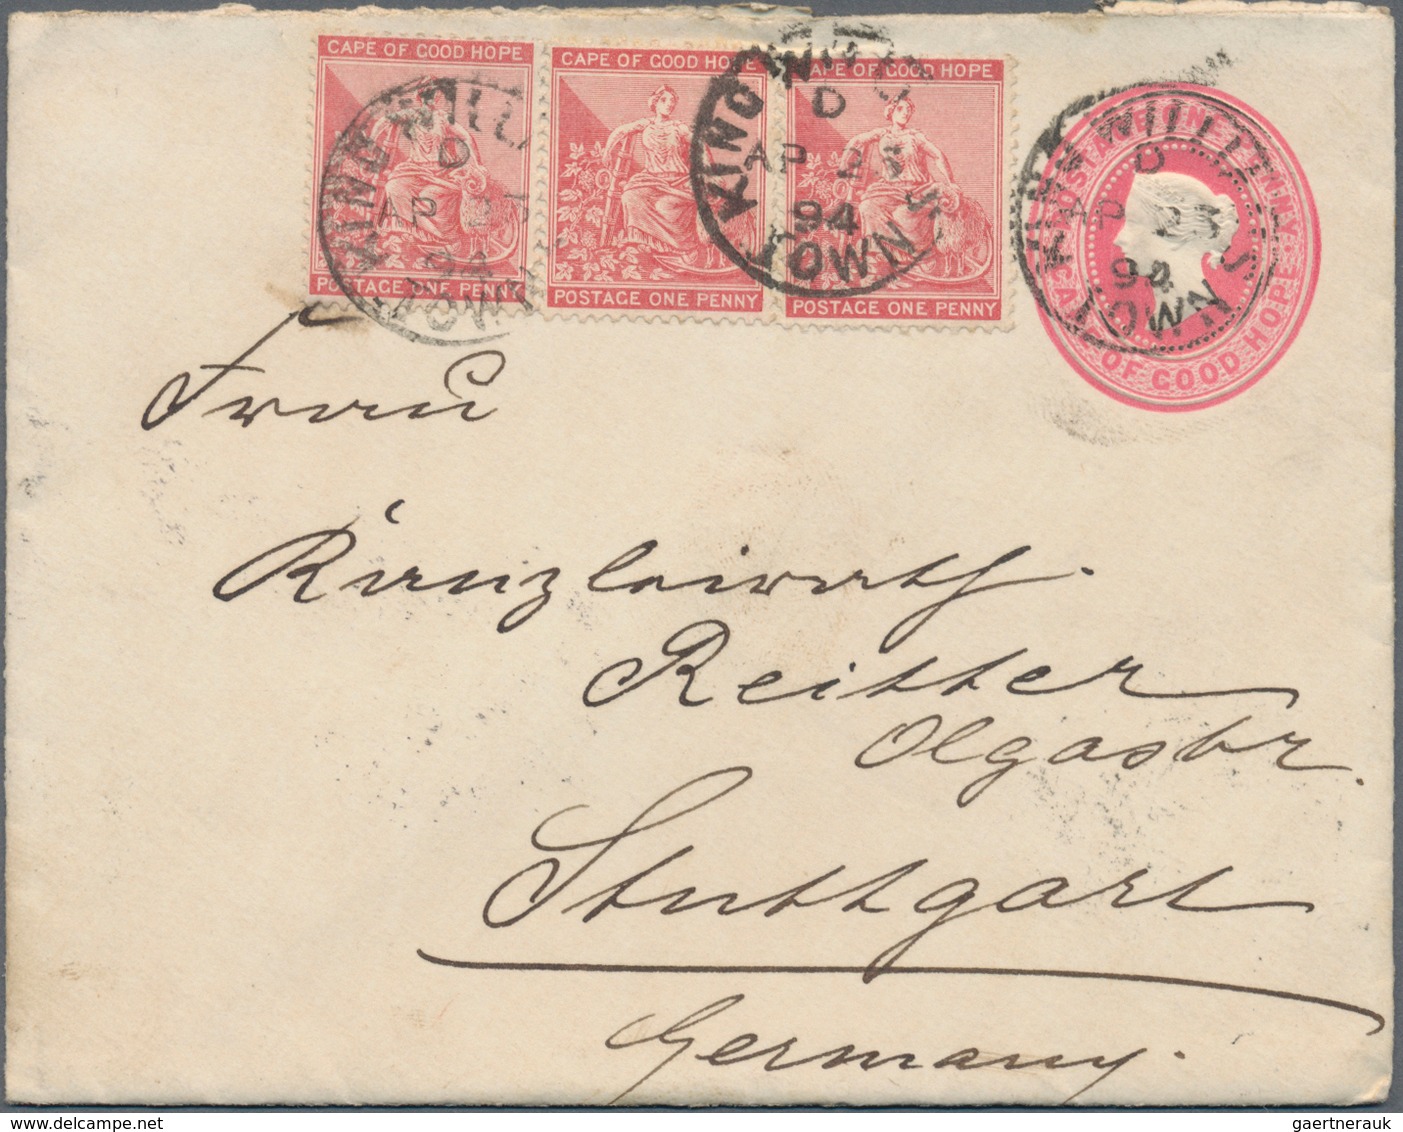 CAPE OF GOOD HOPE
POSTAGE ONE PENNY
CAPE OF GOOD HOPE
POSTAGE ONE PENNY
CAPE OF GOOD HOPE
POSTAGE ONE PENNY
POSTAGE ONE PENNY
CAPE OF GOOD HOPE
KING WILL
D
AP 23
94
TOWN
KING WILLMS
D
AP 23
94
TOWN
KING WILLMS
D
AP 23
94
TOWN
Frau
Kanzleirath
Reitter
Olgastr.
Stuttgart
Germany.
gaertnerauk